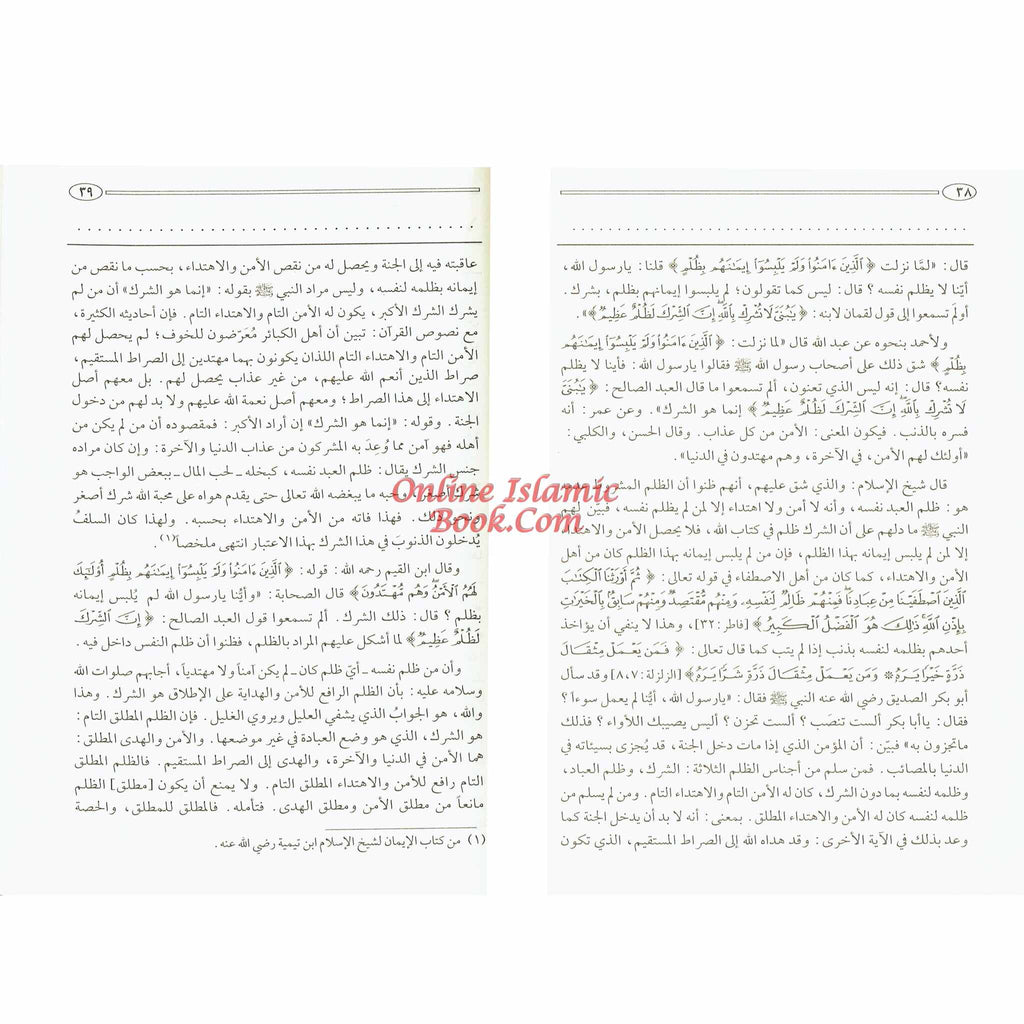 ٣٨
قال : «لمَّا نزلت ﴿ ٱلَّذِينَ ءَامَنُوا۟ وَلَمْ يَلْبِسُوٓا۟ إِيمَـٰنَهُم بِظُلْمٍ ﴾ قلنا : يارسول الله ،
أيّنا لا يظلم نفسه ؟ قال : ليس كما تقولون ؛ لم يلبسوا إيمانهم بظلم ، بشرك .
أولَم تسمعوا إلى قول لقمان لابنه : ﴿ يَـٰبُنَىَّ لَا تُشْرِكْ بِٱللَّهِ إِنَّ ٱلشِّرْكَ لَظُلْمٌ عَظِيمٌ ﴾» .
ولأحمد بنحوه عن عبد الله قال «لما نزلت : ﴿ ٱلَّذِينَ ءَامَنُوا۟ وَلَمْ يَلْبِسُوٓا۟ إِيمَـٰنَهُم
بِظُلْمٍ ﴾ شق ذلك على أصحاب رسول الله ﷺ فقالوا يارسول الله : فأينا لا يظلم
نفسه؟ قال : إنه ليس الذي تعنون ، ألم تسمعوا ما قال العبد الصالح : ﴿ يَـٰبُنَىَّ
لَا تُشْرِكْ بِٱللَّهِ إِنَّ ٱلشِّرْكَ لَظُلْمٌ عَظِيمٌ ﴾ إنما هو الشرك» . وعن عمر : أنه
فسره بالذنب . فيكون المعنى : الأمن من كل عذاب . وقال الحسن ، والكلبي :
«أولئك لهم الأمن ، في الآخرة ، وهم مهتدون في الدنيا» .
قال شيخ الإسلام : والذي شق عليهم ، أنهم ظنوا أن الظلم المشروط عدمه
هو : ظلم العبد نفسه ، وأنه لا أمن ولا اهتداء إلا لمن لم يظلم نفسه ، فبيّن لهم
النبي ﷺ ما دلهم على أن الشرك ظلم في كتاب الله ، فلا يحصل الأمن والاهتداء
إلا لمن لم يلبس إيمانه بهذا الظلم ، فإن من لم يلبس إيمانه بهذا الظلم كان من أهل
الأمن والاهتداء ، كما كان من أهل الاصطفاء في قوله تعالى : ﴿ ثُمَّ أَوْرَثْنَا ٱلْكِتَـٰبَ
ٱلَّذِينَ ٱصْطَفَيْنَا مِنْ عِبَادِنَا فَمِنْهُمْ ظَالِمٌ لِّنَفْسِهِۦ وَمِنْهُم مُّقْتَصِدٌ وَمِنْهُمْ سَابِقٌ بِٱلْخَيْرَٰتِ
بِإِذْنِ ٱللَّهِ ذَٰلِكَ هُوَ ٱلْفَضْلُ ٱلْكَبِيرُ ﴾ [فاطر : ٣٢] ، وهذا لا ينفي أن يؤاخذ
أحدهم بظلمه لنفسه بذنب إذا لم يتب كما قال تعالى : ﴿ فَمَن يَعْمَلْ مِثْقَالَ
ذَرَّةٍ خَيْرًا يَرَهُۥ * وَمَن يَعْمَلْ مِثْقَالَ ذَرَّةٍ شَرًّا يَرَهُۥ ﴾ [الزلزلة : ٨،٧] وقد سأل
أبو بكر الصديق رضي الله عنه النبي ﷺ فقال : «يارسول الله ، أيُّنا لم يعمل سوءاً ؟
فقال : ياأبا بكر ألست تنصَب ؟ ألست تحزن ؟ أليس يصيبك اللأواء ؟ فذلك
ماتجزون به» فبيّن : أن المؤمن الذي إذا مات دخل الجنة ، قد يُجزى بسيئاته في
الدنيا بالمصائب . فمن سلم من أجناس الظلم الثلاثة : الشرك ، وظلم العباد ،
وظلمه لنفسه بما دون الشرك ، كان له الأمن التام والاهتداء التام . ومن لم يسلم من
ظلمه لنفسه كان له الأمن والاهتداء المطلق . بمعنى : أنه لا بد أن يدخل الجنة كما
وعد بذلك في الآية الأخرى : وقد هداه الله إلى الصراط المستقيم ، الذي تكون
٣٩
عاقبته فيه إلى الجنة ويحصل له من نقص الأمن والاهتداء ، بحسب ما نقص من
إيمانه بظلمه لنفسه ، وليس مراد النبي ﷺ بقوله : «إنما هو الشرك» أن من لم
يشرك الشرك الأكبر ، يكون له الأمن التام والاهتداء التام . فإن أحاديثه الكثيرة ،
مع نصوص القرآن : تبين أن أهل الكبائر مُعَرَّضون للخوف ؛ لم يحصل لهم
الأمن التام والاهتداء التام اللذان يكونون بهما مهتدين إلى الصراط المستقيم ،
صراط الذين أنعم الله عليهم ، من غير عذاب يحصل لهم . بل معهم أصل
الاهتداء إلى هذا الصراط ؛ ومعهم أصل نعمة الله عليهم ولا بد لهم من دخول
الجنة . وقوله : «إنما هو الشرك» إن أراد الأكبر : فمقصوده أن من لم يكن من
أهله فهو آمن مما وُعدَ به المشركون من عذاب الدنيا والآخرة : وإن كان مراده
جنس الشرك يقال : ظلم العبد نفسه ، كبخله ـ لحب المال ـ ببعض الواجب هو
شرك أصغر ، وحبه ما يبغضه الله تعالى حتى يقدم هواه على محبة الله شرك أصغر
ونحو ذلك . فهذا فاته من الأمن والاهتداء بحسبه . ولهذا كان السلفُ
يُدخلون الذنوبَ في هذا الشرك بهذا الاعتبار انتهى ملخصاً(١) .
وقال ابن القيم رحمه الله : قوله : ﴿ ٱلَّذِينَ ءَامَنُوا۟ وَلَمْ يَلْبِسُوٓا۟ إِيمَـٰنَهُم بِظُلْمٍ أُو۟لَـٰٓئِكَ
لَهُمُ ٱلْأَمْنُ وَهُم مُّهْتَدُونَ ﴾ قال الصحابة : «وأيُّنا يارسول الله لم يُلبس إيمانه
بظلم ؟ قال : ذلك الشرك . ألم تسمعوا قول العبد الصالح : ﴿ إِنَّ ٱلشِّرْكَ
لَظُلْمٌ عَظِيمٌ ﴾ لما أشكل عليهم المراد بالظلم ، فظنوا أن ظلم النفس داخل فيه .
وأن من ظلم نفسه ـ أيَّ ظلم كان ـ لم يكن آمناً ولا مهتدياً ، أجابهم صلوات الله
وسلامه عليه : بأن الظلم الرافع للأمن والهداية على الإطلاق هو الشرك . وهذا
والله ، هو الجوابُ الذي يشفي العليل ويروي الغليل . فإن الظلم المطلق التام :
هو الشرك ، الذي هو وضع العبادة في غير موضعها . والأمن والهدى المطلق :
هما الأمن في الدنيا والآخرة ، والهدى إلى الصراط المستقيم . فالظلم المطلق
التام رافع للأمن والاهتداء المطلق التام . ولا يمنع أن يكون [مطلق] الظلم
مانعاً من مطلق الأمن ومطلق الهدى . فتأمله . فالمطلق للمطلق ، والحصة
(١) من كتاب الإيمان لشيخ الإسلام ابن تيمية رضي الله عنه .
Online Islamic
Book.Com